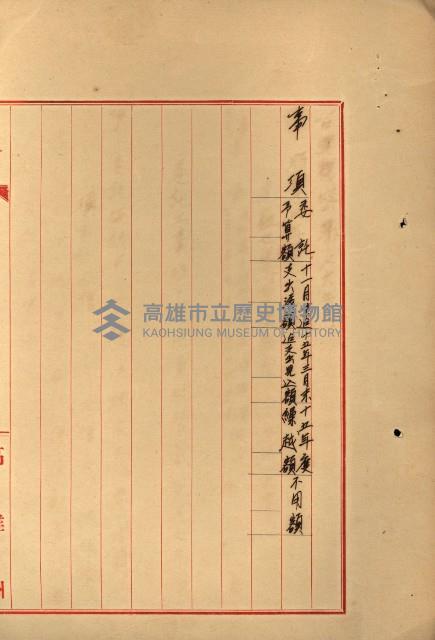 事項
委託
予算額
十一月末迄
支出済額
十五年三月末
迄支出見込額
十五年度
繰越額
不用額
高雄市立歷史博物館
KAOHSIUNG MUSEUM OF HISTORY